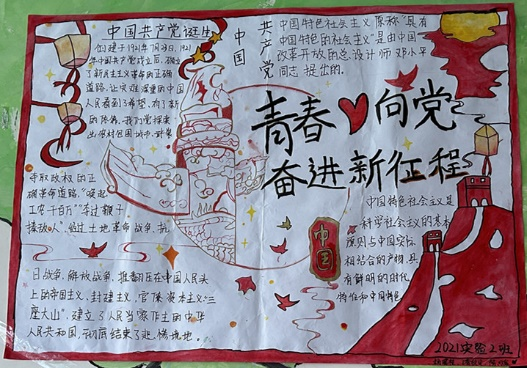 中国共产党诞生
创建于1921年7月23日,1921
年中国共产党成立后,确立
了新民主主义革命的正确
道路,让灾难深重的中国
人民看到了希望,有了新
的
出农村包围城市,武装
夺取政权的正
确革命道路,"唤起
工农千百万"
人",经过土地革命战争,抗
日战争,解放战争,推翻压在中国人民头
上的帝国主义,封建主义,官僚资本主义"三
座大山",建立了人民当家作主的中华
人民共和国,彻底结束了
中国
共产党
中国特色社会主义,简称"具有
中国特色的社会主义"是由中国
改革开放的总设计师邓小平
同志提出的。
青春向党
奋进新征程
中国特色社会主义是
科学社会主义的基本
原则与中国实际
相结合的产物,具
有鲜明的时代
特征和中国特色
中国
2021实验2班